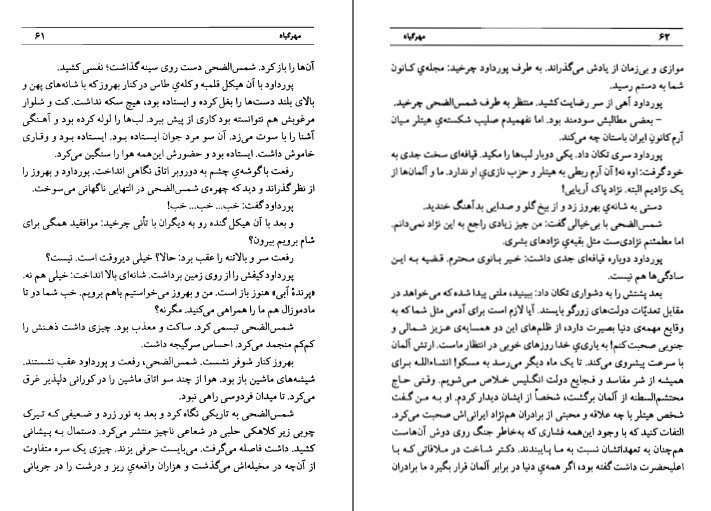 ۶۱
مهرگیاه
آن‌ها را باز کرد. شمس‌الضحی دست روی سینه گذاشت؛ نفسی کشید.
پورداود با آن هیکل قلمبه و کله‌ی طاس در کنار بهروز که با شانه‌های پهن و
بالای بلند دست‌ها را بغل کرده و ایستاده بود، هیچ سکه نداشت. کت و شلوار
مرغوبش هم نتوانسته بود کاری از پیش ببرد. لب‌ها را لوله کرده بود و آهنگی
آشنا را با سوت می‌زد. آن سو مرد جوان ایستاده بود. ایستاده بود و وقاری
خاموش داشت. ایستاده بود و حضورش این‌همه هوا را سنگین می‌کرد.
رفعت با گوشه‌ی چشم به دوروبر اتاق نگاهی انداخت. پورداود و بهروز را
از نظر گذراند و دید که چهره‌ی شمس‌الضحی در التهابی ناگهانی می‌سوخت.
پورداود گفت: خب... خب... خب!
و بعد با آن هیکل گنده رو به دیگران با تأنی چرخید: موافقید همگی برای
شام برویم بیرون؟
رفعت سر و بالاتنه را عقب برد: حالا؟ خیلی دیروقت است. نیست؟
پورداود کیفش را از روی زمین برداشت. شانه‌ای بالا انداخت: خیلی هم نه.
«پرندهٔ آبی» هنوز باز است. من و بهروز می‌خواستیم باهم برویم. خب شما دو تا
مادموازال هم ما را همراهی می‌کنید. مگر نه؟
شمس‌الضحی تبسمی کرد. ساکت و معذب بود. چیزی داشت ذهنش را
کم‌کم منجمد می‌کرد. احساس سرگیجه داشت.
بهروز کنار شوفر نشست. شمس‌الضحی، رفعت و پورداود عقب نشستند.
شیشه‌های ماشین باز بود. هوا از چند سو اتاق ماشین را در کورانی دلپذیر غرق
می‌کرد. تا میدان فردوسی راهی نبود.
شمس‌الضحی به تاریکی نگاه کرد و بعد به نور زرد و ضعیفی که تیرک
چوبی زیر کلاهکی حلبی در شعاعی ناچیز منتشر می‌کرد. دستمال به پیشانی
کشید. داشت فاصله می‌گرفت. می‌بایست حرفی بزند. چیزی یک سره متفاوت
از آن‌چه در مخیله‌اش می‌گذشت و هزاران واقعه‌ی ریز و درشت را در جریانی
۶۲
مهرگیاه
موازی و بی‌زمان از یادش می‌گذراند. به طرف پورداود چرخید: مجله‌ی کانون
شما به دستم رسید.
پورداود آهی از سر رضایت کشید. منتظر به طرف شمس‌الضحی چرخید.
– بعضی مطالبش سودمند بود. اما نفهمیدم صلیب شکسته‌ی هیتلر میان
آرم کانونِ ایران باستان چه می‌کند.
پورداود سری تکان داد. یکی دوبار لب‌ها را مکید. قیافه‌ای سخت جدی به
خود گرفت: اوه نه! آن آرم ربطی به هیتلر و حزب نازی‌ی او ندارد. ما و آلمان‌ها از
یک نژادیم البته. نژاد پاک آریایی!
دستی به شانه‌ی بهروز زد و از بیخ گلو و صدایی بدآهنگ خندید.
شمس‌الضحی با بی‌خیالی گفت: من چیز زیادی راجع به این نژاد نمی‌دانم.
اما مطمئنم نژادی‌ست مثل بقیه‌ی نژادهای بشری.
پورداود دوباره قیافه‌ای جدی داشت: خیر بانوی محترم. قضیه به این
سادگی‌ها هم نیست.
بعد پشتش را به دشواری تکان داد: ببینید، ملتی پیدا شده که می‌خواهد در
مقابل تعدیّات دولت‌های زورگو بایستد. آیا لازم است برای آدمی مثل شما که به
وقایع مهمه‌ی دنیا بصیرت دارد، از ظلم‌های این دو همسایه‌ی عزیز شمالی و
جنوبی صحبت کنم! به یاری‌ی خدا روزهای خوبی در انتظار ماست. ارتش آلمان
با سرعت پیشروی می‌کند. تا یک ماه دیگر می‌رسد به مسکو! انشاءالله برای
همیشه از شر مفاسد و فجایع دولت انگلیس خلاص می‌شویم. وقتی حاج
محتشم‌السطنه از آلمان برگشت، شخصاً از ایشان دیدار کردم. او به من گفت
شخص هیتلر با چه علاقه و محبتی از برادران هم‌نژاد ایرانی‌اش صحبت می‌کرد.
التفات کنید که با وجود این‌همه فشاری که به‌خاطر جنگ روی دوش آن‌هاست
هم‌چنان به تعهداتشان نسبت به ما پایبندند. دکتر شاخت در ملاقاتی که با
اعلیحضرت داشت گفته بود، اگر همه‌ی دنیا در برابر آلمان قرار بگیرد ما برادران